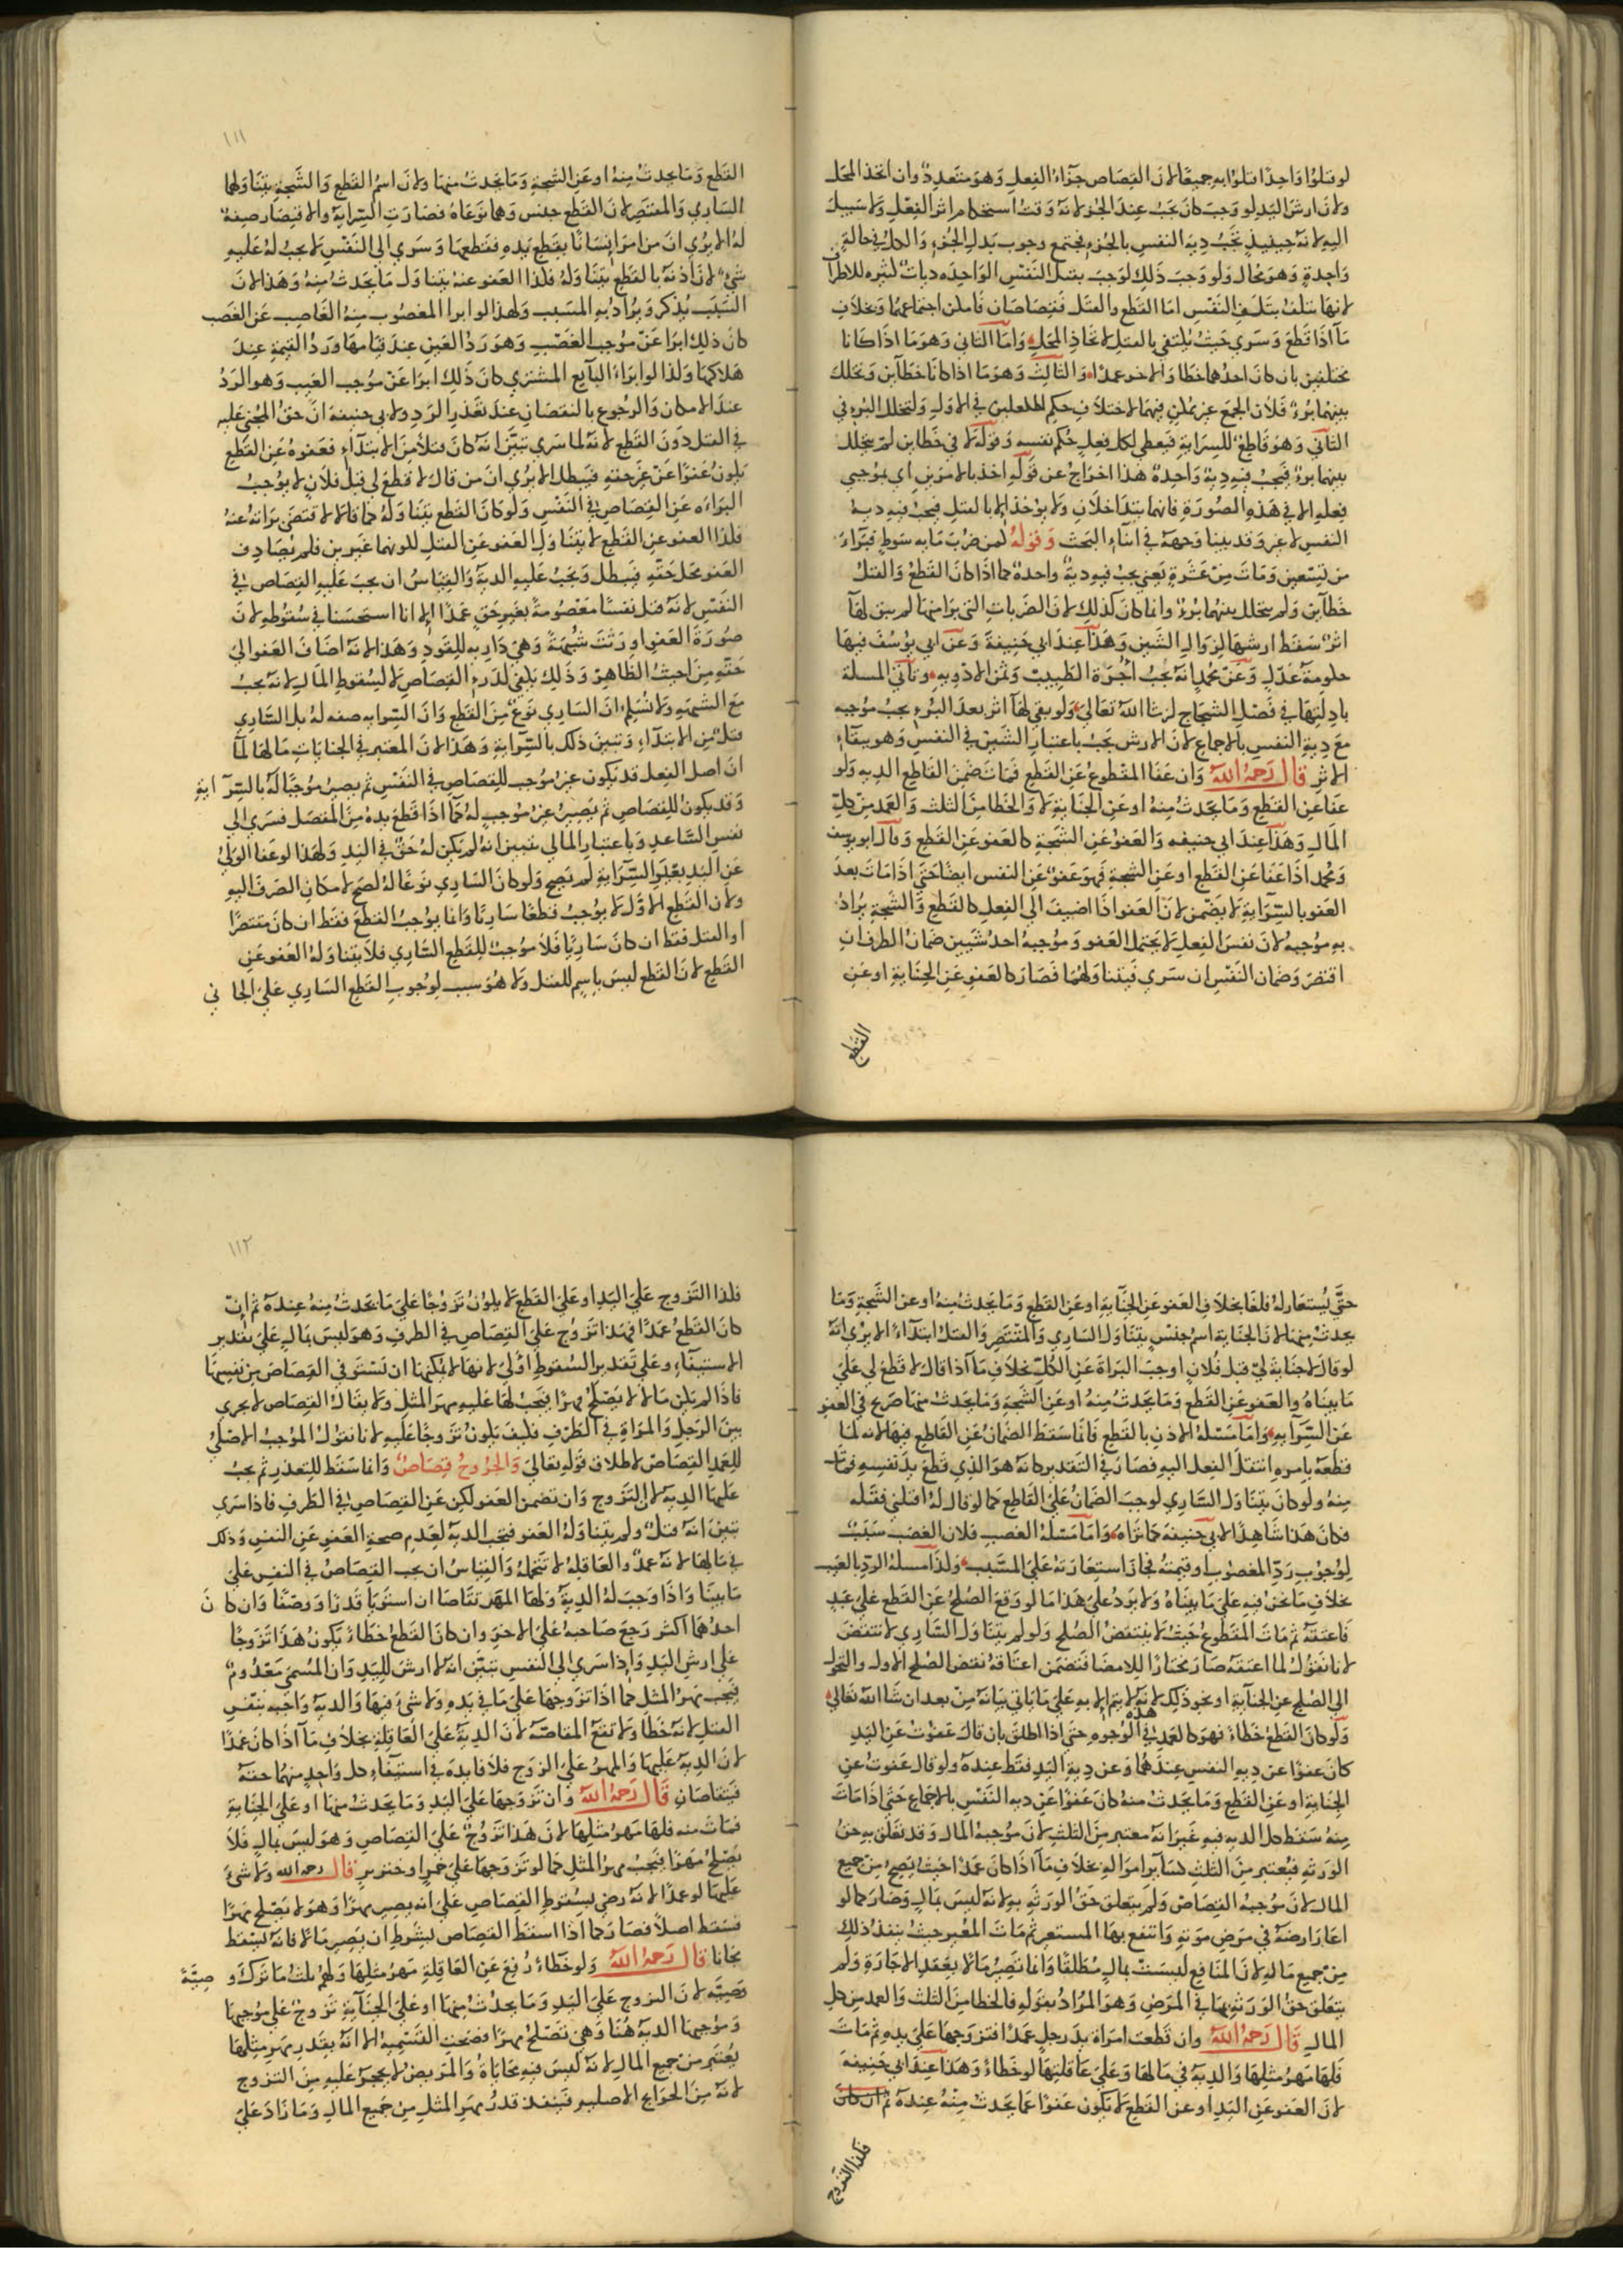 لو قتلوا واحدًا قتلوا به جميعًا لان القصاص جزاء الفعل وهو متعدد وان اتحد المحل
ولان ارش اليد لو وجب كان يجب عند الجز لانه وقت استحكام اثر الفعل ولا سبيل
اليه لانه حينيذٍ تجب دية النفس بالجز فيجتمع وجوب بدل الجزء والكل في حالة
واحدة وهو محال ولو وجب ذلك لوجب بقتل النفس الواحدة ديات كثيرة للاطراف
لانها تتلف بتلف النفس اما القطع والقتل قصاصان فامكن اجتماعهما وبخلاف
ما اذا قطع وسري حيث يكتفي بالقتل لاتحاد المحل واما الثاني وهو ما اذا كانا
مختلفين بان كان احدهما خطا والاخر عمدًا والثالث وهو ما اذا كانا خطأين وتخلل
بينهما برؤ فلان الجمع غير ممكن فيهما لاختلاف حكم الفعلين في الاول ولتخلل البرء في
الثاني وهو قاطع للسراية فيعطي لكل فعل حكم نفسه وقوله لا في خطاين لم يتخلل
بينهما برؤ فيجب فيه دية واحدة هذا اخراج عن قوله اخذ بالامرين اي بموجبي
فعله الا في هذه الصورة فانهما يتداخلان ولا يؤخذ الا بالقتل فيجب فيه دية
النفس لا غير وقد بينا وجهه في اثناء البحث وقوله كمن ضرب مايه سوط فبراء
من تسعين ومات من عشرة يعني يجب فيه دية واحدة كما اذا كان القطع والقتل
خطأين ولم يتخلل بينهما برؤ وانما كان كذلك لان الضربات التي برا منها لم يبق لها
اثر سقط ارشها لزوال الشين وهذا عند ابي حنيفة وعن ابي يوسف فيها
حكومة عدل وعن محمد انه يجب اجرة الطبيب وثمن الادويه وتاتي المسلة
بادلتها في فصل الشجاج ان شا الله تعالي ولو بقي لها اثر بعد البرء يجب موجبه
مع دية النفس بالاجماع لان الارش يجب باعتبار الشين في النفس وهو ببقاء
الاثر قال رحمه الله وان عفا المقطوع عن القطع فمات ضمن القاطع الديه ولو
عفا عن القطع وما يحدث منه او عن الجناية لا والخطا من الثلث والعمد من كل
المال وهذا عند ابي حنيفه والعفو عن الشجة كالعفو عن القطع وقال ابو يوسف
ومحمد اذا عفا عن القطع او عن الشجة فهو عفو عن النفس ايضا حتي اذا مات بعد
العفو بالسراية لا يضمن لان العفو اذا اضيف الي الفعل كالقطع والشجة يراد
به موجبه لان نفس الفعل لا يحتمل العفو وموجبه احد شيين ضمان الطرف ان
اقتصر وضمان النفس ان سري فيتناولهما فصار كالعفو عن الجناية او عن
القطع
١١١
القطع وما يحدث منه او عن الشجة وما يحدث منها ولان اسم القطع والشجة يتناولهما
الساري والمقتصر لان القطع جنس وهما نوعاه فصارت السراية والاقتصار صفة
له الا يري ان من امر انسانًا بقطع يده فقطعها وسري الي النفس لا يجب له عليه
شئ لان اذنه بالقطع يتناوله فكذا العفو عنه يتناول ما يحدث منه وهذا لان
السبب يذكر ويراد به المسبب ولهذا لو ابرا المغصوب منه الغاصب عن الغصب
كان ذلك ابرا عن موجب الغصب وهو رد العين عند قيامها ورد القيمة عند
هلاكها وكذا لو ابراء البايع المشتري كان ذلك ابرا عن موجب العيب وهو الرد
عند الامكان والرجوع بالنقصان عند تعذر الرد ولابي حنيفة ان حق المجني عليه
في القتل دون القطع لانه لما سري تبين انه كان قتلا من الابتداء فعفوه عن القطع
يكون عفوا عن غير حقه فيبطل الا يري ان من قال لا قطع لي قبل فلان لا يوجب
البراءه عن القصاص في النفس ولو كان القطع يتناوله كما قالا لاقتضي براته عنه
فكذا العفو عن القطع لا يتناول العفو عن القتل لكونهما غيرين فلم يصادف
العفو محل حقه فيبطل ويجب عليه الدية والقياس ان يجب عليه القصاص في
النفس لانه قتل نفسا معصومة بغير حق عمدًا الا انا استحسنا في سقوطه لان
صورة العفو اورثت شبهة وهي دارية للقود وهذا لانه اضاف العفو الي
حقه من حيث الظاهر وذلك يكفي لدرء القصاص لا لسقوط المال لانه يجب
مع الشبهه ولا نسلم ان الساري نوع من القطع وان السرايه صفه له بل الساري
قتل من الابتداء وتبين ذلك بالسراية وهذا لان المعتبر في الجنايات مآلها لما
ان اصل الفعل قد يكون غير موجب للقصاص في النفس ثم يصير موجبا له بالسراية
وقد يكون للقصاص ثم يصير غير موجب له كما اذا قطع يده من المفصل فسري الي
نفس الساعد وباعتبار المال يتبين انه لم يكن له حق في اليد ولهذا لو عفا الولي
عن اليد بعد السراية لم يصح ولو كان الساري نوعًا له لصح لامكان الصرف اليه
ولان القطع الاول لا يوجب قطعًا ساريًا وانما يوجب القطع فقط ان كان مقتصرًا
او القتل فقط ان كان ساريًا فلا موجب للقطع الساري فلا يتناوله العفو عن
القطع لان القطع ليس باسم للقتل ولا هو سبب لوجوب القطع الساري علي الجاني
حتي يستعار له فلغا بخلاف العفو عن الجناية او عن القطع وما يحدث منه او عن الشجة وما
يحدث منها لان الجناية اسم جنس يتناول الساري والمقتصر والقتل ابتداء الا يري انه
لو قال لا جناية لي قبل فلان اوجب البراة عن الكل بخلاف ما اذا قال لا قطع لي علي
ما بيناه والعفو عن القطع وما يحدث منه او عن الشجة وما يحدث منها صريح في العفو
عن السرايه واما مسئلة الاذن بالقطع فانما سقط الضمان عن القاطع فيها لانه لما
قطعه بامره انتقل الفعل اليه فصار في التقدير كانه هو الذي قطع يد نفسه فمات
منه ولو كان يتناول الساري لوجب الضمان علي القاطع كما لو قال له اقتلني فقتله
فكان هذا شاهدًا لابي حنيفة كما تراه واما مسئلة الغصب فلان الغصب سبب
لوجوب رد المغصوب او قيمته فجاز استعارته علي المسبب وكذا مسئلة الرد بالعيب
بخلاف ما نحن فيه علي ما بيناه ولا يرد علي هذا ما لو وقع الصلح عن القطع علي عبد
فاعتقه ثم مات المقطوع حيث لا ينتقض الصلح ولو لم يتناول الساري لانتقض
لانا نقول لما اعتقه صار مختارًا للامضا فتضمن اعتاقه نقض الصلح الاول والتحول
الي الصلح عن الجناية او نحو ذلك لانه لا يتم الا به علي ما ياتي بيانه من بعد ان شا الله تعالي
ولو كان القطع خطاء فهو كالعمد في هذه الوجوه حتي اذا اطلق بان قال عفوت عن اليد
كان عفوًا عن ديه النفس عندهما وعن دية اليد فقط عنده ولو قال عفوت عن
الجناية او عن القطع وما يحدث منه كان عفوًا عن ديه النفس بالاجماع حتي اذا مات
منه سقط كل الديه فيه غير انه معتبر من الثلث لان موجبه المال وقد تعلق به حق
الورثه فيعتبر من الثلث كسائر امواله بخلاف ما اذا كان عمدًا حيث يصح من جميع
المال لان موجبه القصاص ولم يتعلق حق الورثه به لانه ليس بمال وصار كما لو
اعار ارضه في مرض موته وانتفع بها المستعير ثم مات المعير حيث ينفذ ذلك
من جميع ماله لان المنافع ليست بمال مطلقًا وانما تصير مالًا بعقد الاجارة ولم
يتعلق حق الورثه بها في المرض وهو المراد بقوله فالخطا من الثلث والعمد من كل
المال قال رحمه الله وان قطعت امراة يد رجل عمدًا فتزوجها علي يده ثم مات
فلها مهر مثلها والديه في مالها وعلي عاقلتها لو خطاءً وهذا عند ابي حنيفة
لان العفو عن اليد او عن القطع لا يكون عفوًا عما يحدث منه عنده ثم ان كان
فكذا التزوج
١١٢
فكذا التزوج علي اليد او علي القطع لا يكون تزوجًا علي ما يحدث منه عنده ثم ان
كان القطع عمدًا فهذا تزوج علي القصاص في الطرف وهو ليس بمال علي تقدير
الاستيفاء وعلي تقدير السقوط اولي لانها لا يمكنها ان تستوفي القصاص من نفسها
فاذا لم يكن مالا لا يصلح مهرا فيجب لها عليه مهر المثل ولا يقال القصاص لا يجري
بين الرجل والمراة في الطرف فكيف يكون تزوجًا عليه لانا نقول الموجب الاصلي
للعمد القصاص لاطلاق قوله تعالي والجروح قصاص وانما سقط للتعذر ثم يجب
عليها الدية لان التزوج وان تضمن العفو لكن عن القصاص في الطرف فاذا سري
تبين انه قتل ولم يتناوله العفو فتجب الدية لعدم صحة العفو عن النفس وذلك
في مالها لانه عمد والعاقلة لا تتحمله والقياس ان يجب القصاص في النفس علي
ما بينا واذا وجب له الدية ولها المهر تقاصا ان استويا قدرًا ووصفًا وان كان
احدهما اكثر رجع صاحبه علي الاخر وان كان القطع خطاءً يكون هذا تزوجًا
علي ارش اليد واذا سري الي النفس تبين انه لا ارش لليد وان المسمي معدوم
فيجب مهر المثل كما اذا تزوجها علي ما في يده ولا شئ فيها والدية واجبه بنفس
القتل لانه خطأ ولا تقع المقاصة لان الدية علي العاقلة بخلاف ما اذا كان عمدًا
لان الدية عليها والمهر علي الزوج فلا فايدة في استيفاء كل واحد منهما حقه
فيتقاصان قال رحمه الله وان تزوجها علي اليد وما يحدث منها او علي الجناية
فمات منه فلها مهر مثلها لان هذا تزوج علي القصاص وهو ليس بمال فلا
يصلح مهرًا فيجب مهر المثل كما لو تزوجها علي خمر او خنزير قال رحمه الله ولا شئ
عليها لو عمدًا لانه رضي بسقوط القصاص علي انه يصير مهرًا وهو لا يصلح مهرًا
فسقط اصلًا فصار كما اذا اسقط القصاص بشرط ان يصير مالًا فانه يسقط
مجانا قال رحمه الله ولو خطاءً رفع عن العاقلة مهر مثلها ولهم ثلث ما ترك وصية
وصية لان التزوج علي اليد وما يحدث منها او علي الجناية تزوج علي موجبها
وموجبها الدية هنا وهي تصلح مهرًا فصحت التسمية الا انه بقدر مهر مثلها
يعتبر من جميع المال لانه ليس فيه محاباة والمريض لا يحجر عليه من التزوج
لانه من الحوايج الاصليه فينفذ قدر مهر المثل من جميع المال وما زاد علي